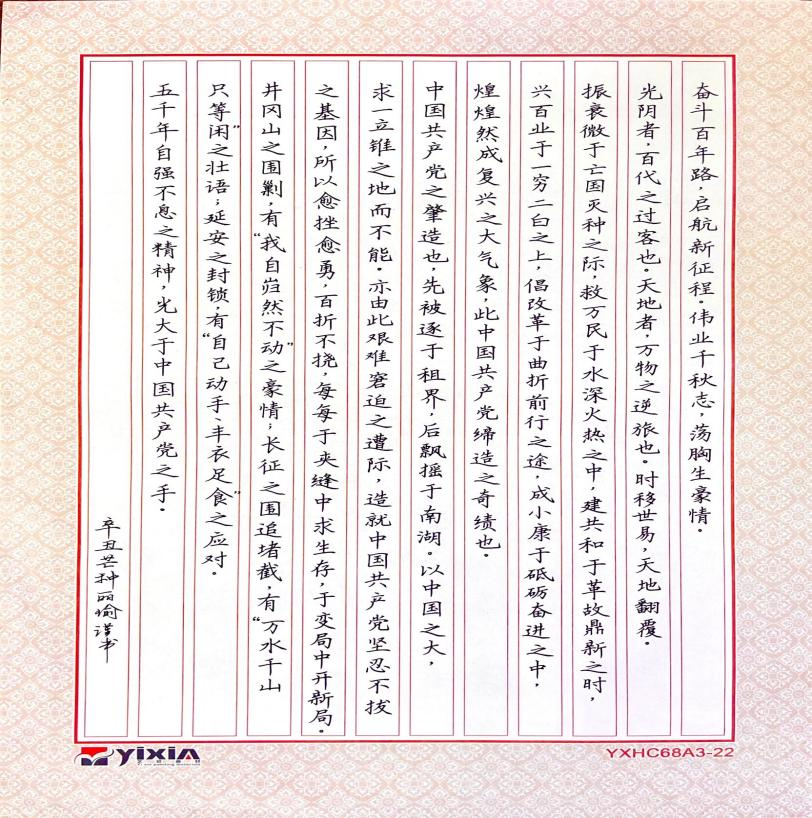 奋斗百年路，启航新征程。伟业千秋志，荡胸生豪情。
光阴者，百代之过客也。天地者，万物之逆旅也。时移世易，天地翻覆。
振衰微于亡国灭种之际，救万民于水深火热之中，建共和于革故鼎新之时，
兴百业于一穷二白之上，倡改革于曲折前行之途，成小康于砥砺奋进之中，
煌煌然成复兴之大气象，此中国共产党缔造之奇绩也。
中国共产党之肇造也，先被逐于租界，后飘摇于南湖。以中国之大，
求一立锥之地而不能。亦由此艰难窘迫之遭际，造就中国共产党坚忍不拔
之基因，所以愈挫愈勇，百折不挠，每每于夹缝中求生存，于变局中开新局。
井冈山之围剿，有“我自岿然不动”之豪情；长征之围追堵截，有“万水千山
只等闲”之壮语；延安之封锁，有“自己动手、丰衣足食”之应对。
五千年自强不息之精神，光大于中国共产党之手。
辛丑芒种丽愉谨书
YIXIA
YXHC68A3-22